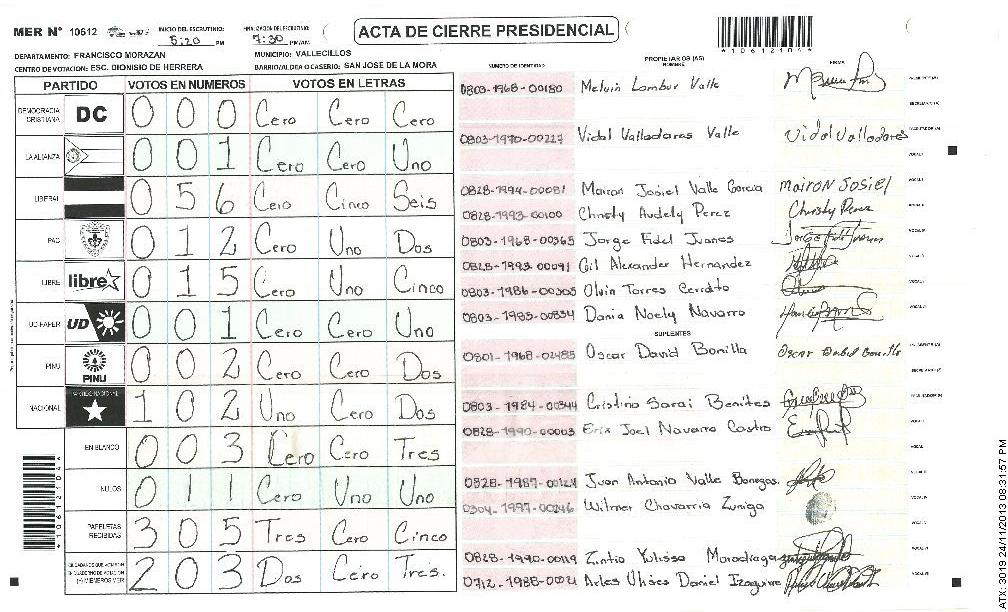 MER N° 10612 INICIO DEL ESCRUTINIO: 5:20 PM FINALIZACION DEL ESCRUTINIO: 7:30 PM/AM
ACTA DE CIERRE PRESIDENCIAL
*10612104*
DEPARTAMENTO: FRANCISCO MORAZAN MUNICIPIO: VALLECILLOS
CENTRO DE VOTACION: ESC. DIONISIO DE HERRERA BARRIO/ALDEA O CASERIO: SAN JOSE DE LA MORA
PARTIDO VOTOS EN NUMEROS VOTOS EN LETRAS
DEMOCRACIA CRISTIANA DC 0 0 0 Cero Cero Cero
LA ALIANZA 0 0 1 Cero Cero Uno
LIBERAL 0 5 6 Cero Cinco Seis
PAC 0 1 2 Cero Uno Dos
LIBRE libre 0 1 5 Cero Uno Cinco
UD-FAPER UD 0 0 1 Cero Cero Uno
PINU PINU 0 0 2 Cero Cero Dos
NACIONAL 1 0 2 Uno Cero Dos
EN BLANCO 0 0 3 Cero Cero Tres
NULOS 0 1 1 Cero Uno Uno
PAPELETAS RECIBIDAS 3 0 5 Tres Cero Cinco
2 0 3 Dos Cero Tres.
*10612104*
NUMERO DE IDENTIDAD PROPIETARIOS (AS) NOMBRE FIRMA
0803-1968-00180 Melvin Lombur Valle
0803-1970-00227 Vidal Valladares Valle Vidal Valladares
0828-1994-00081 Mairon Josiel Valle Garcia Mairon Josiel
0828-1993-00100 Christy Audely Perez Christy Perez
0803-1968-00365 Jorge Fidel Juanes
0828-1993-00091 Gil Alexander Hernandez
0803-1986-00305 Olvin Torres Cerrato
0803-1985-00834 Dania Noely Navarro
SUPLENTES
0801-1968-02485 Oscar David Bonilla
0803-1984-00344 Cristino Sarai Benites
0828-1990-00003 Erix Joel Navarro Castro
0828-1987-00124 Juan Antonio Valle Banegas
0304-1997-00246 Wilmer Chavarria Zuniga
0828-1990-00119 Zintio Yulissa
0712-1988-00021 Arles Ulises Daniel Izaguirre
ATX-3019 24/11/2013 08:31:57 PM